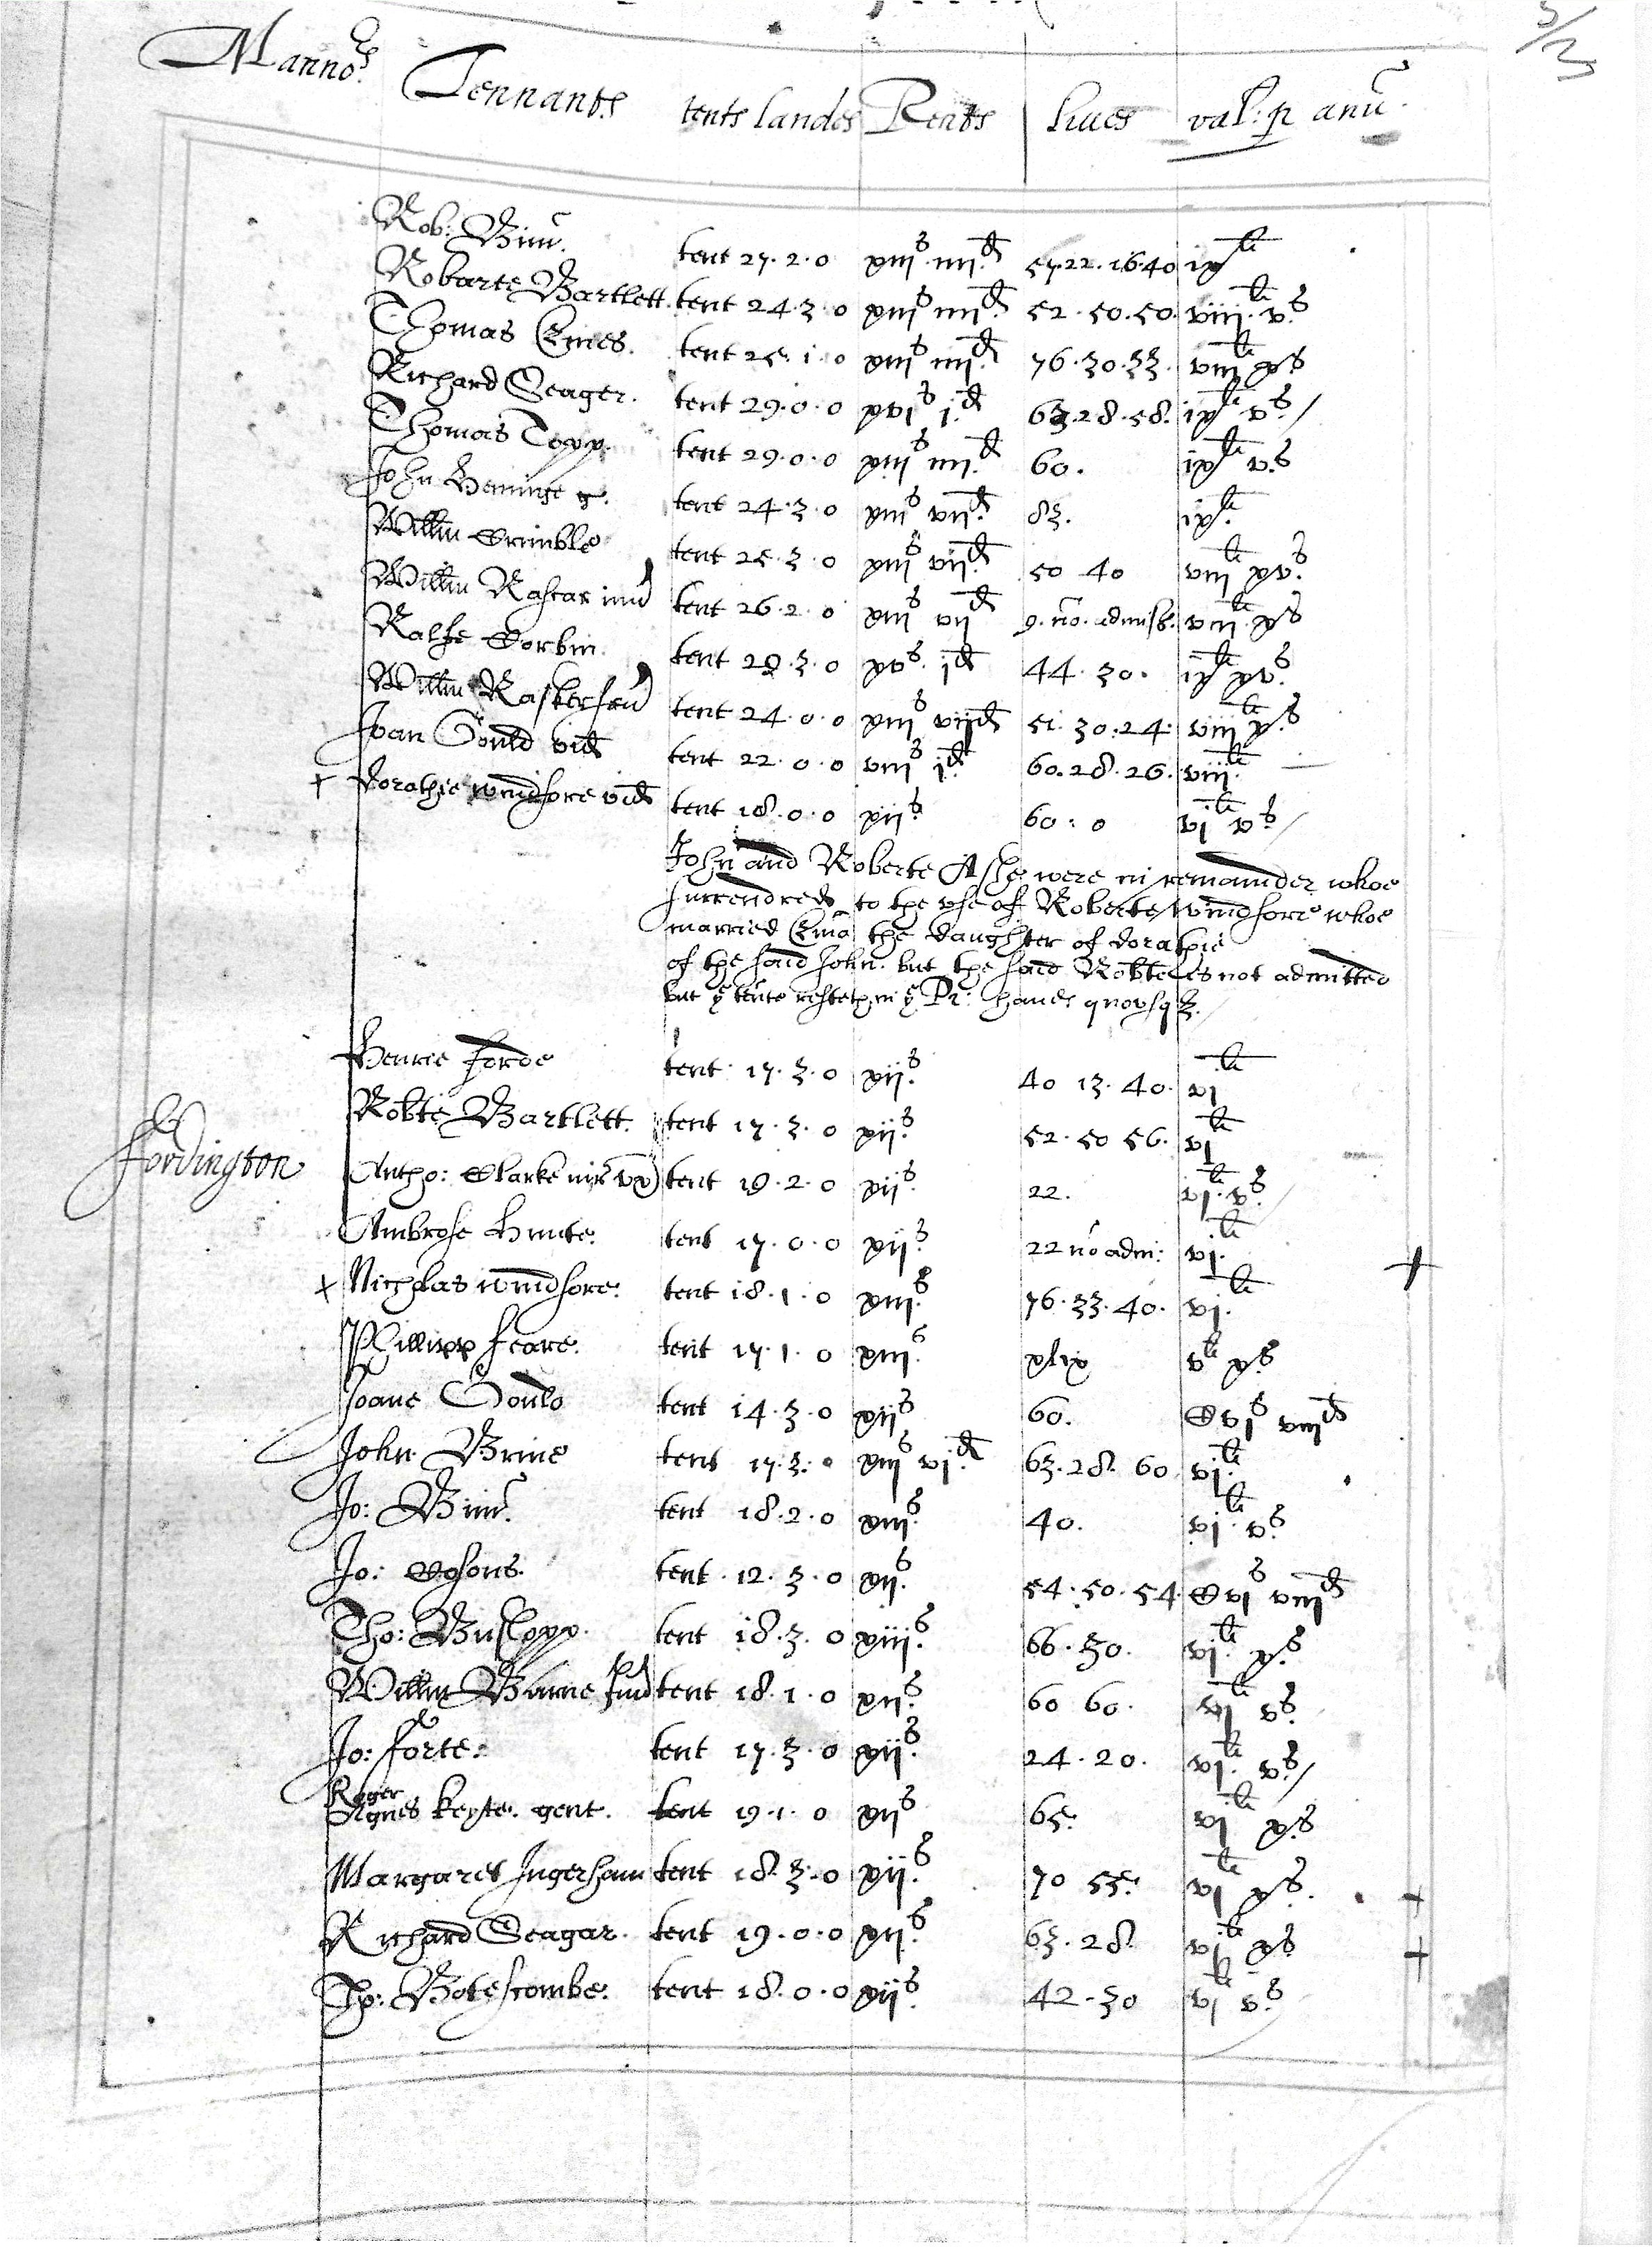 Mannors Tennants tents landes Rents liues val: p anu
Rob: tent 27.2.0 xiiis. iiiid. 57.22.16.40 ixli
Robarte Bartlett. tent 24.3.0 xiiis iiiid. 52.50.50. viiili. vs.
Thomas Emes. tent 25.1.0 xiiis iiiid. 76.30.33. viiili xs
Richard Seager. tent 29.0.0 xvis id. 63.28.58. ixli vs./
Thomas Topp. tent 29.0.0 xiiis iiiid. 60. ixli vs.
John tent 24.3.0 xiiis viid. 83. ixli.
Willm Crimble tent 25.3.0 xiiis viid. 50 40 viiili xvs.
Willm iun tent 26.2.0 xiiis viid 9. no. admiss. viiili. xs
Ralfe Corbin. tent 28.3.0 xvs. id 44.30. ixli xvs.
Willm tent 24.0.0 xiiis viid 51.30.24. viiili xs
Joan Gould vid tent 22.0.0 viiis id. 60.28.26. viiili.
+ Dorathie windsore vid tent 18.0.0 xiis. 60:0 vili vs./
John and Roberte Ashe were in remainder whoe
surrendred to the vse of Roberte windsore whoe
married Ema the daughter of dorathie
of the said John. but the said Robte is not admitted
but ye tente resteth in ye Pr: hands quousq3.
Henrie forde tent 17.3.0 xiis. 40 13.40. vili
Robte Bartlett. tent 17.3.0 xiis. 52.50 56. vili
Fordington
Antho: Clarke tent 19.2.0 xiis. 22. vili. vs.
Ambrose Hunte. tent 17.0.0 xiis. 22 no adm: vili.
+ Nicholas windsore. tent 18.1.0 xiiis. 76.33.40. vili. +
Phillipp feare. tent 17.1.0 xiiis. xlix vli xs
Joane Gould tent 14.3.0 xiis 60. Cvis viiid
John Brine tent 17.3.0 xiiis vid. 63.28.60 vili.
Jo: tent 18.2.0 xiiis. 40. vili. vs.
Jo: tent 12.3.0 xiis. 54.50.54. Cvis viiid
Tho: Bushopp. tent 18.3.0 xiiis. 66.30. vili. xs.
Willm tent 18.1.0 xiis. 60 60. vili vs.
Jo: forte: tent 17.3.0 xiis. 24.20. vili. vs./
Roger
Agnes keyte. gent. tent 19.1.0 xiis 65. vili xs.
Margaret Ingerham tent 18.3.0 xiis. 70 55. vili xs. +
Richard Seagar. tent 19.0.0 xiis. 63.28. vili xs +
Tho: Botescombe. tent 18.0.0 xiis. 42.30 vili vs.